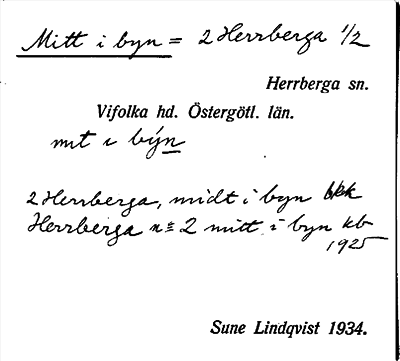 Mitt i byn = 2 Herrberga 1/2
Herrberga sn.
Vifolka hd. Östergötl. län.
mt i býn
2 Herrberga, midt i byn
Herrberga n= 2 mitt i byn kb
1925
Sune Lindqvist 1934.